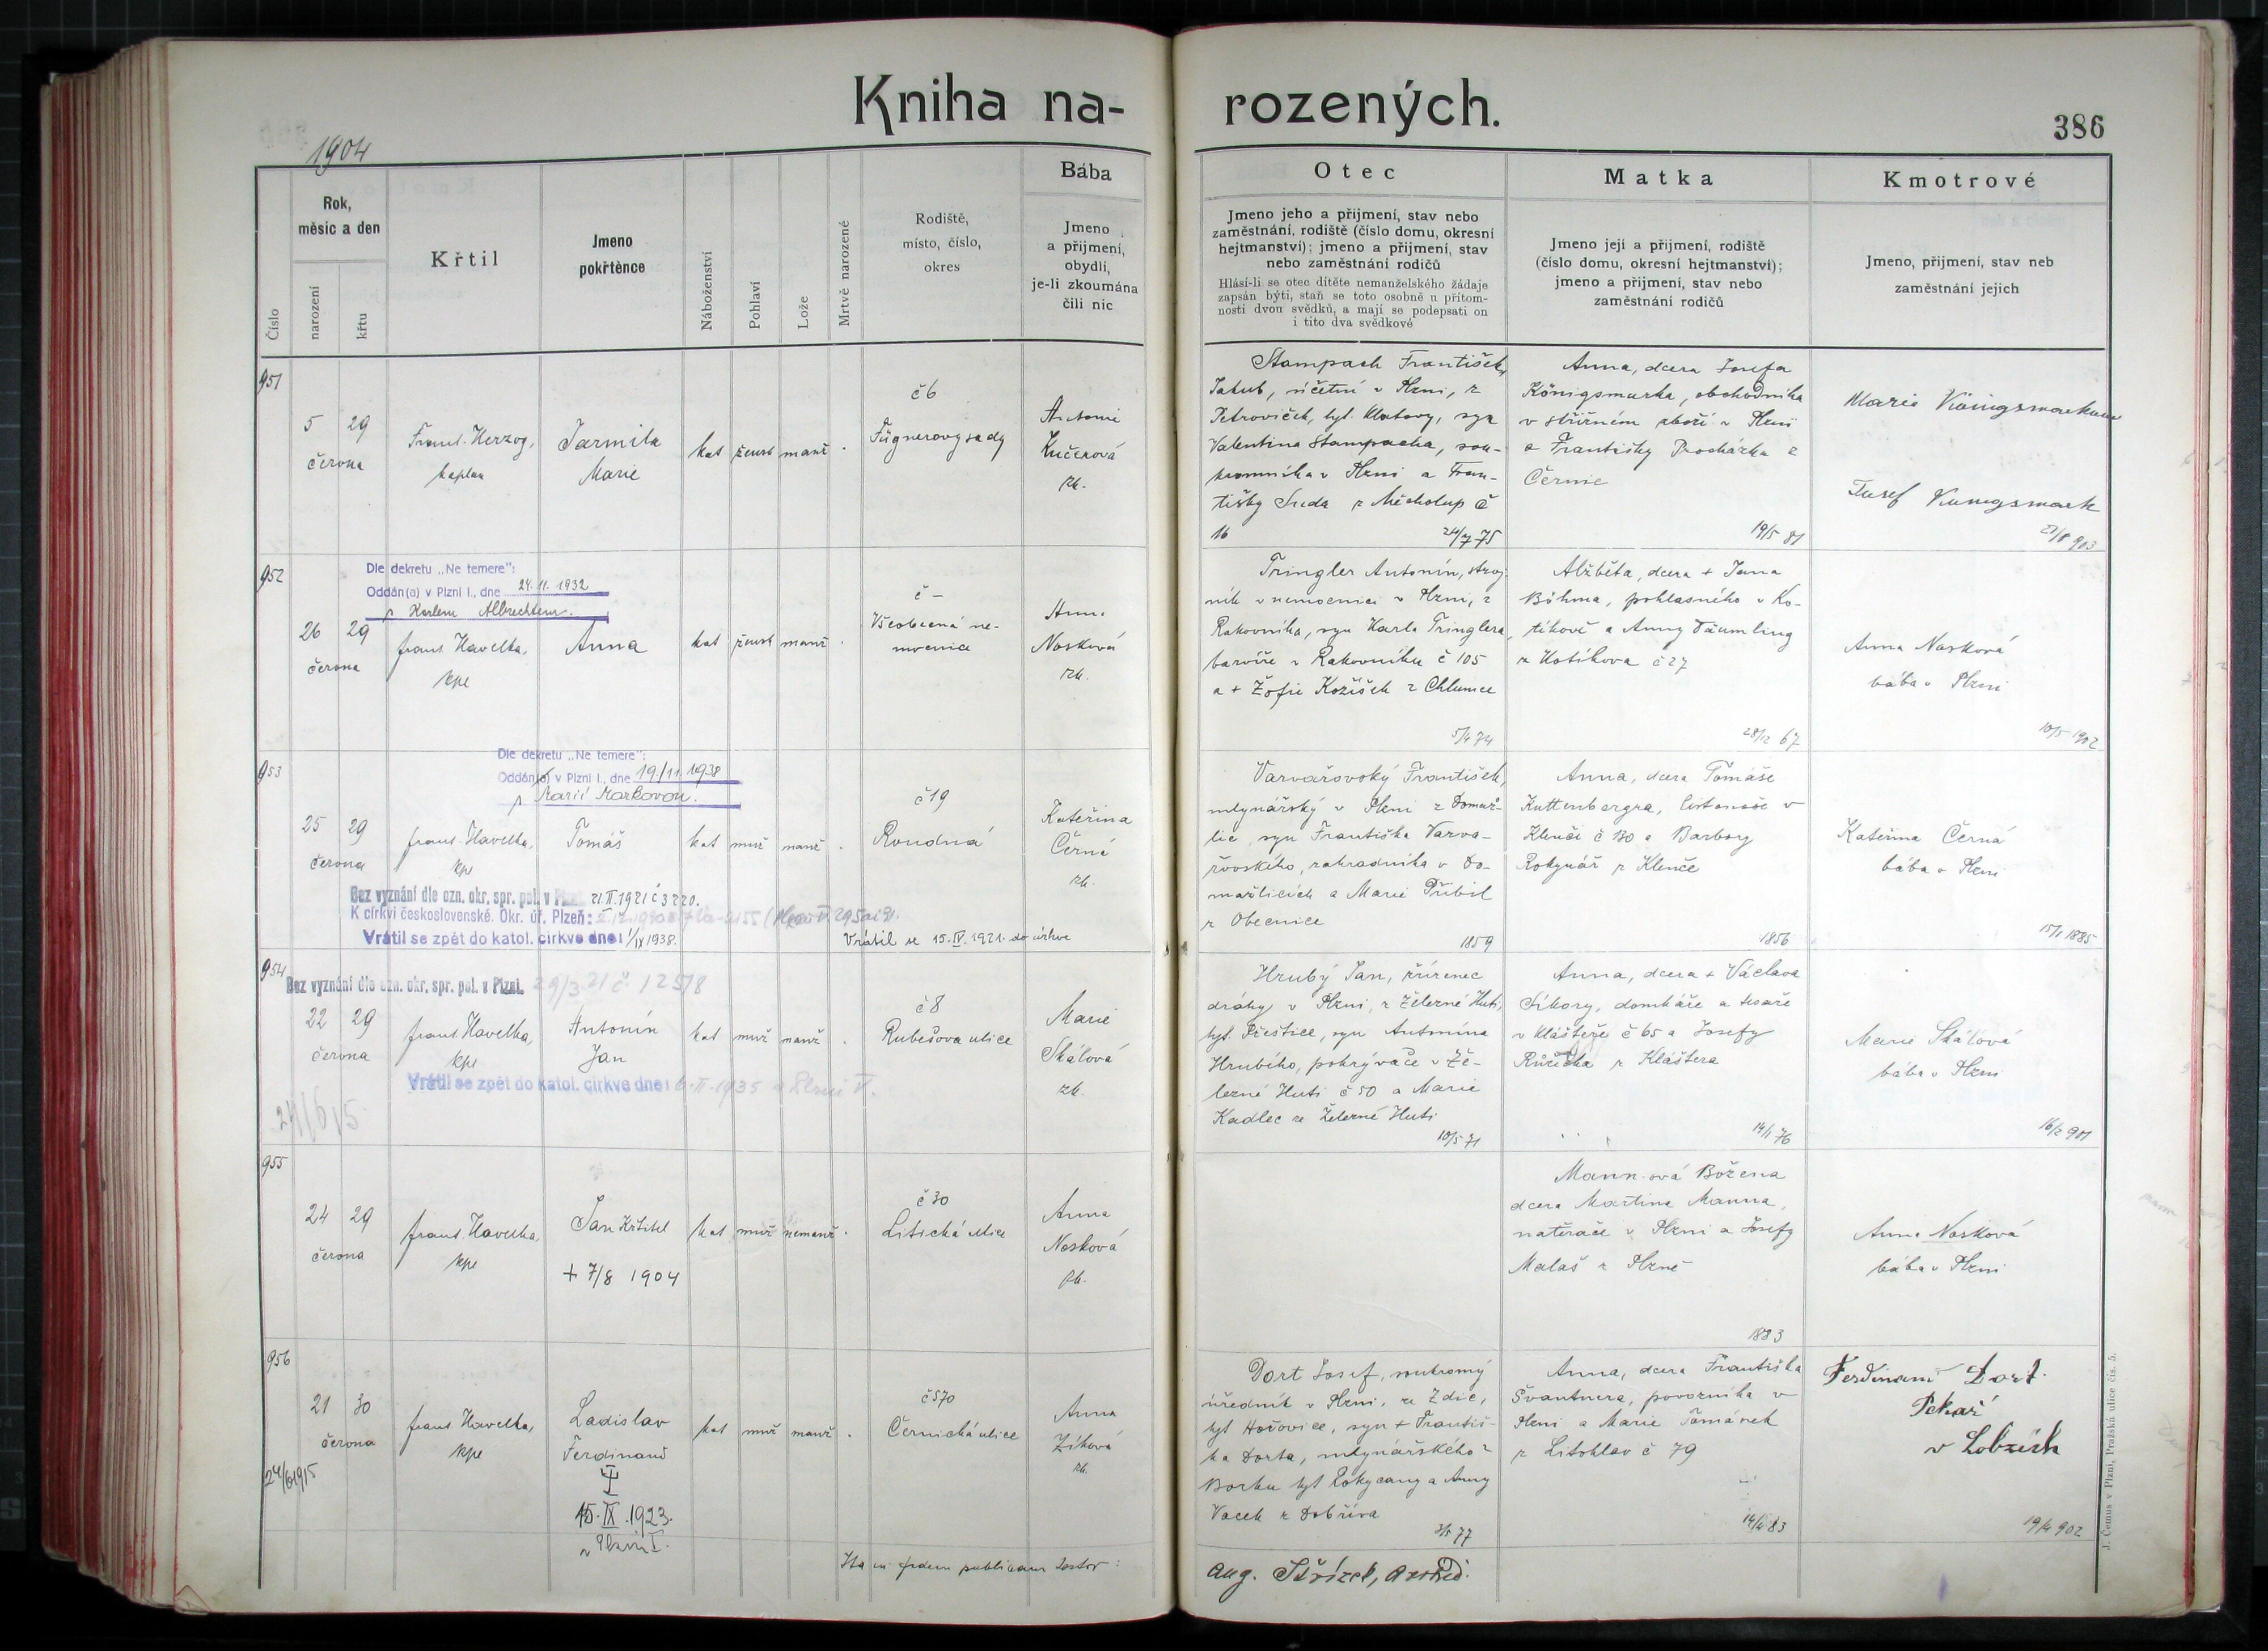 Kniha na-
rozených.
386
1904
Číslo
Rok,
měsíc a den
narození
křtu
Křtil
Jmeno
pokřtěnce
Náboženství
Pohlaví
Lože
Mrtvě narozené
Rodiště,
místo, číslo,
okres
Bába
Jmeno
a přijmení,
obydlí,
je-li zkoumána
čili nic
Otec
Jmeno jeho a přijmení, stav nebo
zaměstnání, rodiště (číslo domu, okresní
hejtmanství); jmeno a přijmení, stav
nebo zaměstnání rodičů
Hlásí-li se otec dítěte nemanželského žádaje
zapsán býti, staň se toto osobně u přítom-
nosti dvou svědků, a mají se podepsati on
i tito dva svědkové
Matka
Jmeno její a přijmení, rodiště
(číslo domu, okresní hejtmanství);
jmeno a přijmení, stav nebo
zaměstnání rodičů
Kmotrové
Jmeno, přijmení, stav neb
zaměstnání jejich
951
5 29
června
Frant. Herzog,
kaplan
Jarmila
Marie
kat žensk manž
č 6
Fügnerovy sady
Antonie
Kučerová
zk.
Stampach František
Jakub, účetní v Plzni, z
Petroviček, hejt. Klatovy, syn
Valentina Stampacha, sou-
kromníka v Plzni a Fran-
tišky Suda z Měcholup č
16
24/7 75
Anna, dcera Josefa
Königsmarka, obchodníka
v střižném zboží v Plzni
a Františky Procházka z
Černic
19/5 81
Marie Königsmarkova
Josef Königsmark
903
952
Dle dekretu „Ne temere":
Oddán(a) v Plzni I., dne 24. 11. 1932
s Karlem Albrechtem.
26 29
června
frant. Havelka,
kpl
Anna
kat žensk manž
č –
Všeobecná ne-
mocnice
Anna
Nosková
zk.
Tringler Antonín, stroj-
ník v nemocnici v Plzni, z
Rakovníka, syn Karla Tringlera,
barvíře v Rakovníku č 105
a + Žofie Kozíšek z Chlumce
5/4 74
Alžběta, dcera + Jana
Böhma, pohlasného v Ko-
tíkově a Anny Däumling
z Kotíkova č 27
28/12 67
Anna Nosková
bába v Plzni
10/5 1902
953
Dle dekretu „Ne temere":
Oddán(a) v Plzni I., dne 19/11. 1938
s Marií Markovou.
25 29
června
frant. Havelka,
kpl
Tomáš
kat muž manž
č 19
Roudná
Kateřina
Černá
zk.
Bez vyznání dle ozn. okr. spr. pol. v Plzni 21.II.1921 č 3220.
K církvi československé. Okr. úř. Plzeň:
Vrátil se zpět do katol. církve dne: 1/IX 1938.
Vrátil se 15. IV. 1921. do církve
Varvařovský František,
mlynářský v Plzni z Domaž-
lic, syn Františka Varva-
řovského, zahradníka v Do-
mažlicích a Marie Přibil
z Obecnice
1859
Anna, dcera Tomáše
Kuttenbergra, listonoše v
Klenči č 130 a Barbory
Rokynář z Klenče
1856
Kateřina Černá
bába v Plzni
15/1 1885
954
Bez vyznání dle ozn. okr. spr. pol. v Plzni. 29/3 21 č 12518
22 29
června
frant. Havelka,
kpl
Antonín
Jan
kat muž manž
č 8
Rubešova ulice
Marie
Skálová
zk.
Vrátil se zpět do katol. církve dne: 6. II. 1935 v Plzni V.
24/6 15
Hrubý Jan, zřízenec
dráhy v Plzni, z Železné Huti,
hejt. Přeštice, syn Antonína
Hrubého, pokrývače v Že-
lezné Huti č 50 a Marie
Kadlec ze Železné Huti
10/5 71
Anna, dcera + Václava
Sikory, domkáře a tesaře
v Klášteře č 65 a Josefy
Růžička z Kláštera
14/1 76
Marie Skálová
bába v Plzni
16/2 901
955
24 29
června
frant. Havelka,
kpl
Jan Křtitel
+ 7/8 1904
kat muž nemanž
č 30
Litická ulice
Anna
Nosková
zk.
Mann-ová Božena
dcera Martina Manna,
natěrače v Plzni a Josefy
Malaš z Plzně
1883
Anna Nosková
bába v Plzni
956
21 30
června
24/6 1915
frant. Havelka,
kpl
Ladislav
Ferdinand
15. IX. 1923.
v Plzni I.
kat muž manž
č 570
Černická ulice
Anna
Zíková
zk.
Dort Josef, soukromý
úředník v Plzni, ze Zdic,
hejt Hořovice, syn + Františ-
ka Dorta, mlynářského z
Borku hejt Rokycany a Anny
Vacek z Dobříva
77
Anna, dcera Františka
Švantnera, povozníka v
Plzni a Marie Tománek
z Litohlav č 79
14/4 83
Ferdinand Dort.
Pekař
v Lobzích
19/4 902
Ita in fidem publicam testor:
Aug. Střízek, archid.
J. Čemus v Plzni, Pražská ulice čís. 5.